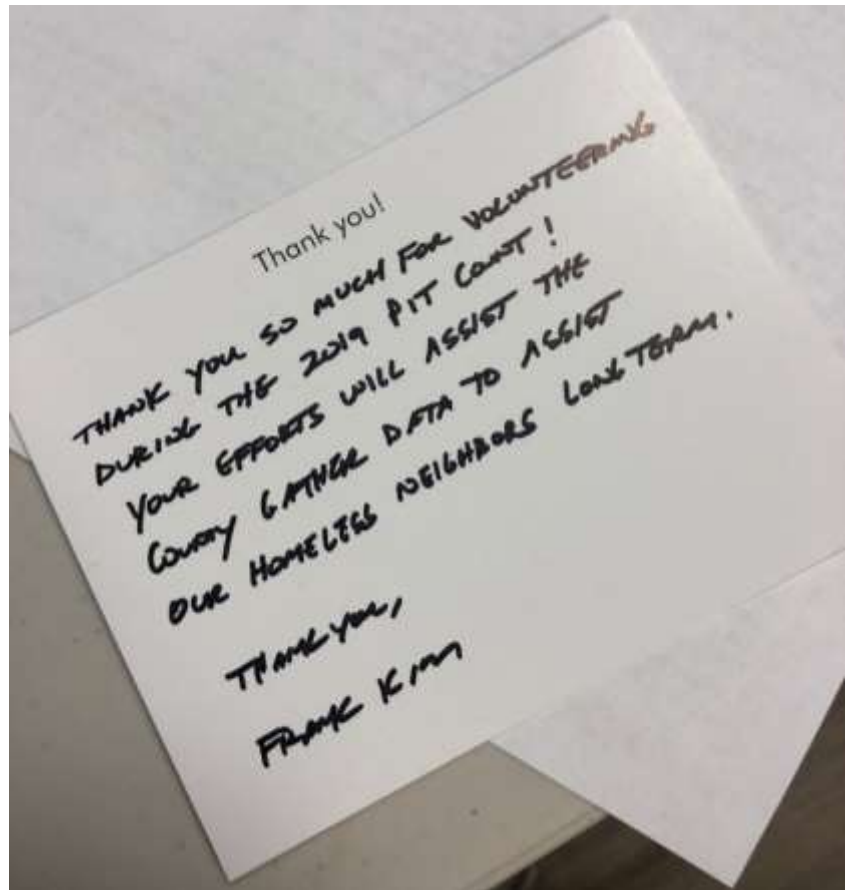 Thank you!
THANK YOU SO MUCH FOR VOLUNTEERING
DURING THE 2019 PIT COUNT!
YOUR EFFORTS WILL ASSIST THE
COUNTY GATHER DATA TO ASSIST
OUR HOMELESS NEIGHBORS LONG TERM.
THANK YOU,
FRANK KIM